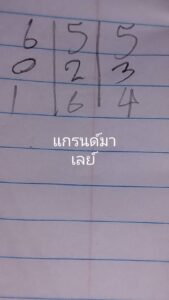 6|5|5
0|2|3
1|6|4
แกรนด์มา
เลย์